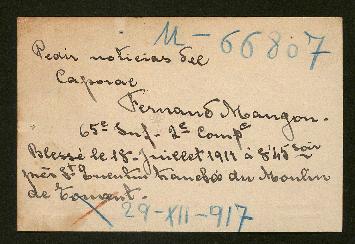 M - 66807
Pedir noticias del
Caporal
Fernand Mangon.
65e Inf. 2e Compe
Blessé le 18 Juillet 1917 à 8h45 soir
près St Quentin tranchée du Moulin
de
29-XII-917